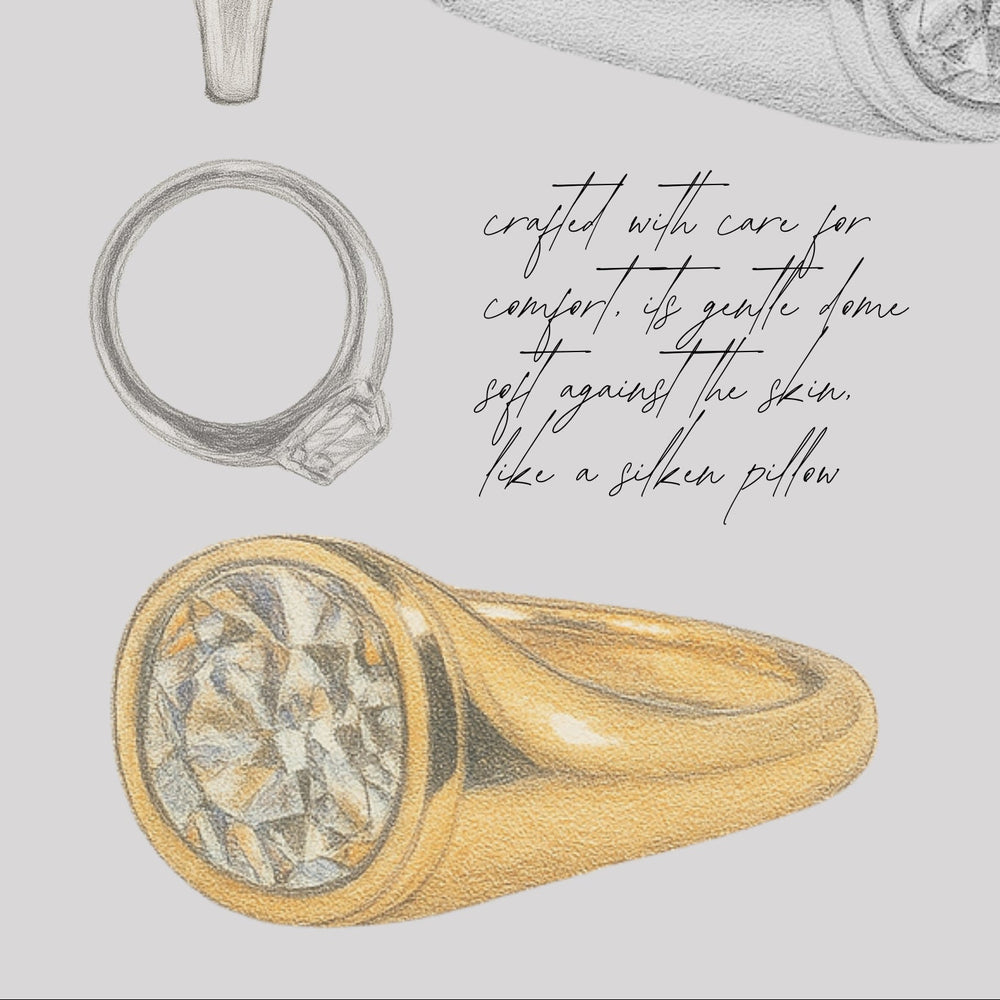 crafted with care for
comfort, its gentle dome
soft against the skin,
like a silken pillow